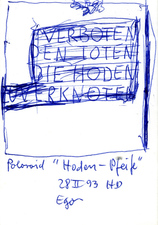 VERBOTEN
DEN TOTEN
DIE HODEN
VERKNOTEN
Polaroid "Hoden-Pfeife"
28 II 93 HD
Ego